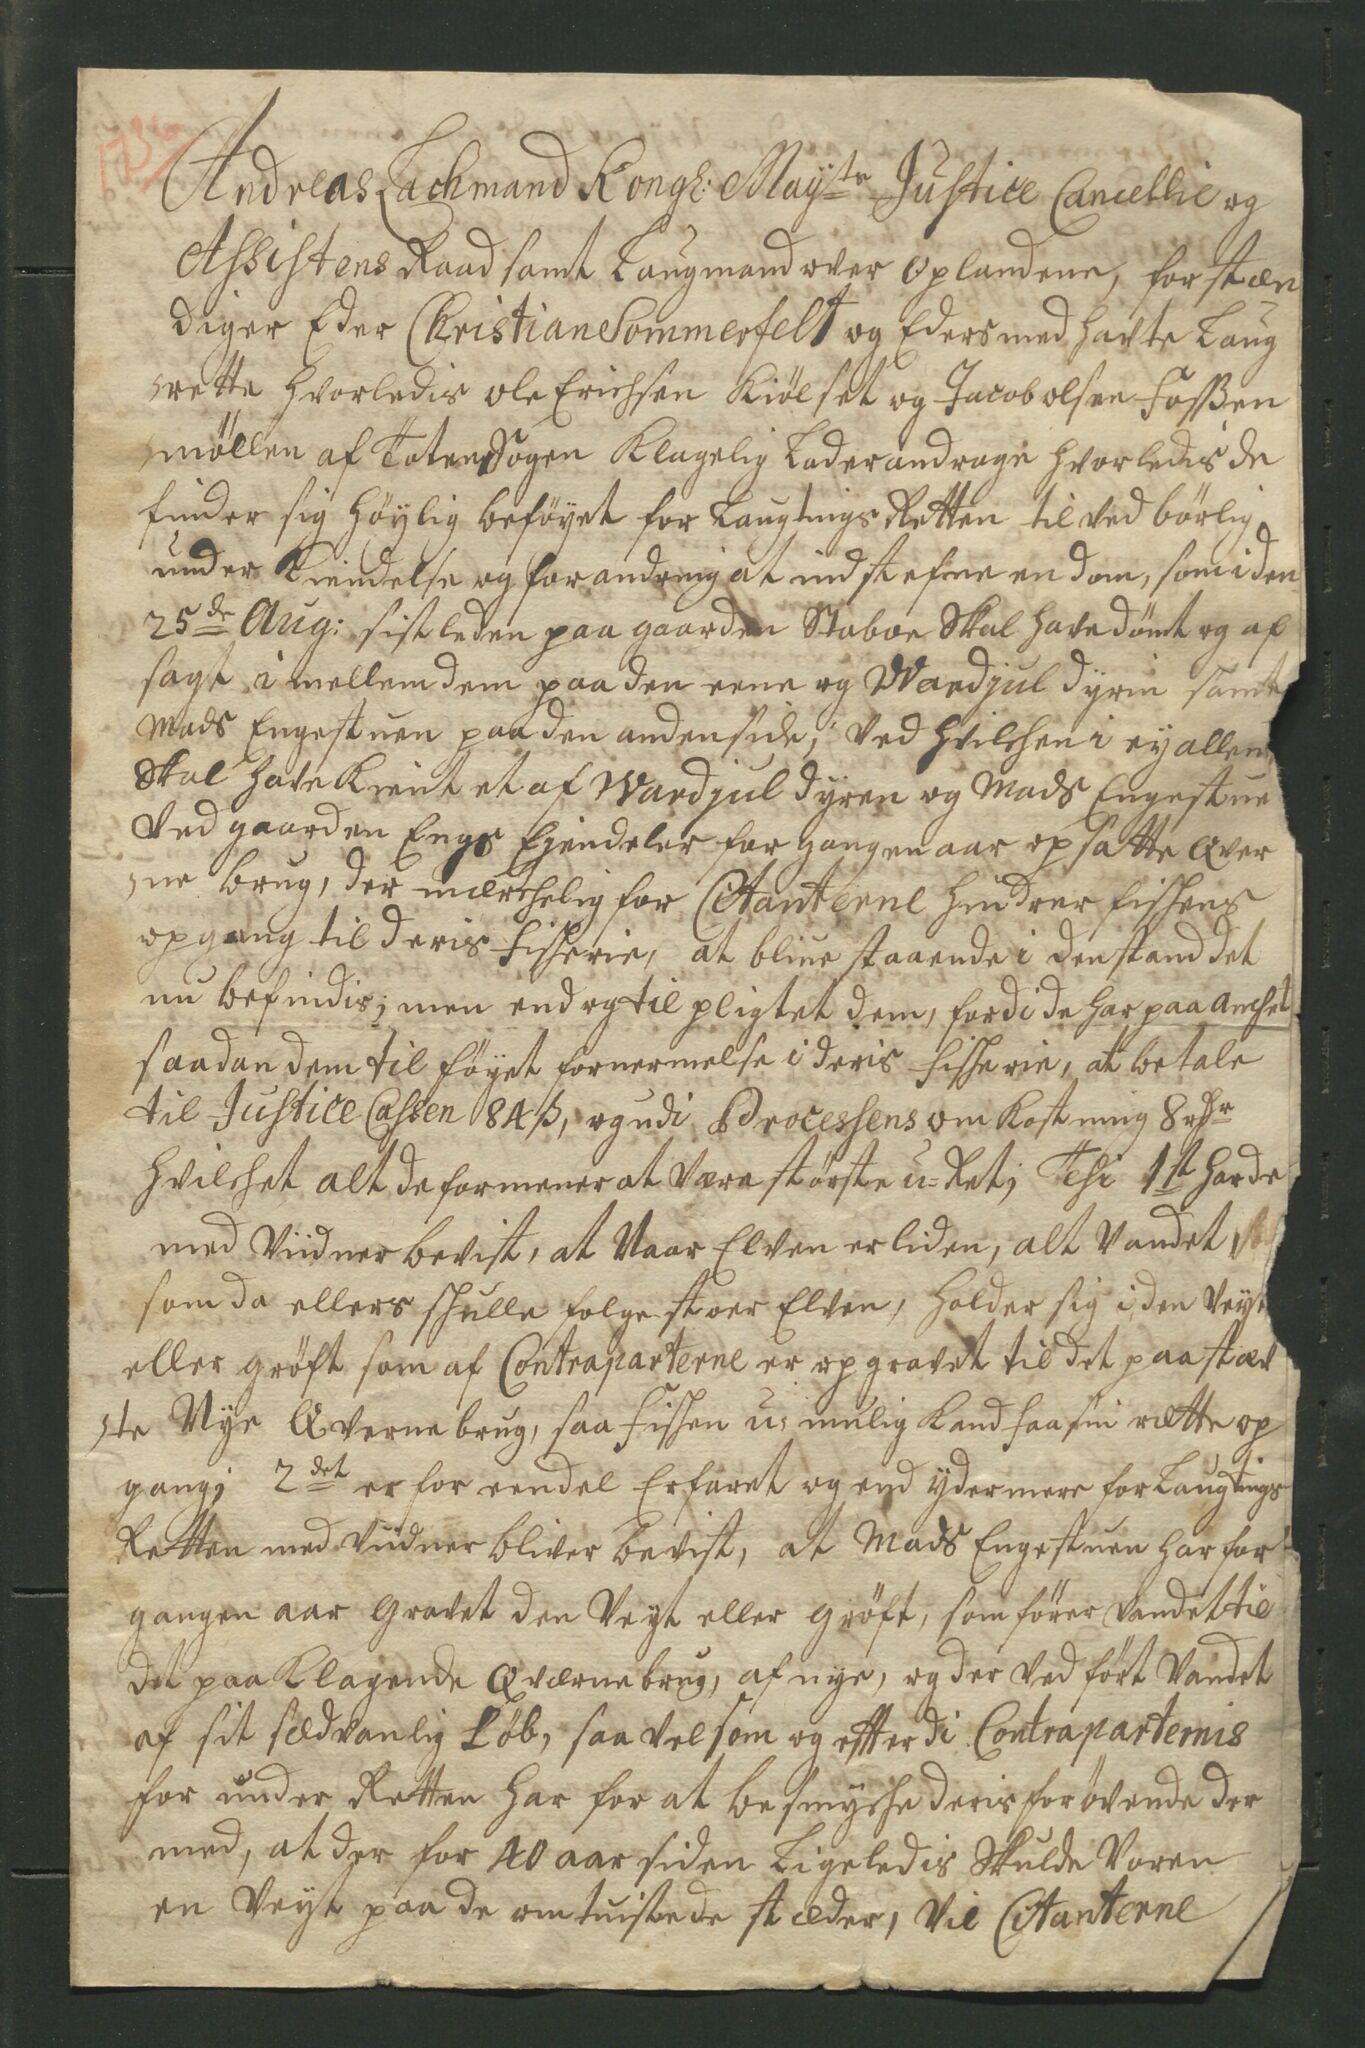 1736
Andreas Lachmand Kongl: Mayts Justice Cancellie og
Assistens Raad samt Laugmand over Oplandene, forstæn
diger Eder Christian Sommerfelt og Eders med hafte Laug
rette hvorledis Ole Erichsen Kiölset og Jacob olsen Fossen
möllen af Toten Sogen Klagelig Lader andrage hvorledis de
finder sig höylig beföyet for Laugtings Retten til ved börlig
under Kiendelse og forandring at indstefne en dom, som i den
25de Aug: sistleden paa gaarden Staboe Skal have dömt og af
sagt i mellem dem paa den eene og Wardjul dyrin samt
Mads Engestuen paa den anden side, ved hvilchen i ey allene
Skal have Kient et af Wardjul dyren og Mads Engestue
ved gaarden Engs Ejendeler forgangen aar opsatte Qver
ne brug, der merchelig for Citanterne hindrer fischens
opgang til deris Fischerie, at blive staaende i den stand det
nu befindis; men end og tilpligtet dem, fordi de har paa anchet
saadan dem til föyet fornermelse i deris Fischerie, at betale
til Justice Cassen 84 s, og udi Processens omkostning 8 rdr
hvilchet alt de formener at være störste u-Ret; Thi 1st har de
med Viidner bevist, at Naar Elven er liden, alt Vandet
som da ellers schulle folge stoer Elven, holder sig i den Veyt
eller gröft som af Contraparterne er opgravet til det paastæv
te Nye Qvernebrug, saa Fischen u-mulig kand faa sin rette op
gang; 2det er for eendel Erfaret og end ydermere for Laugtings
Retten med viidner bliver bevist, at Mads Engestuen har for
gangen aar gravet den Veyt eller gröft, som förer vandet til
det paaklagende Qværnebrug, af nye, og der ved fört Vandet
af sit sædvanlig Löb, saa vel som og efterdi Contraparternis
for under Retten har for at besmyche deris forövende der
med, at der for 40 aar siden Ligeledis Skulde Voren
en Veyt paa de omtuistede stæder, vil Citanterne